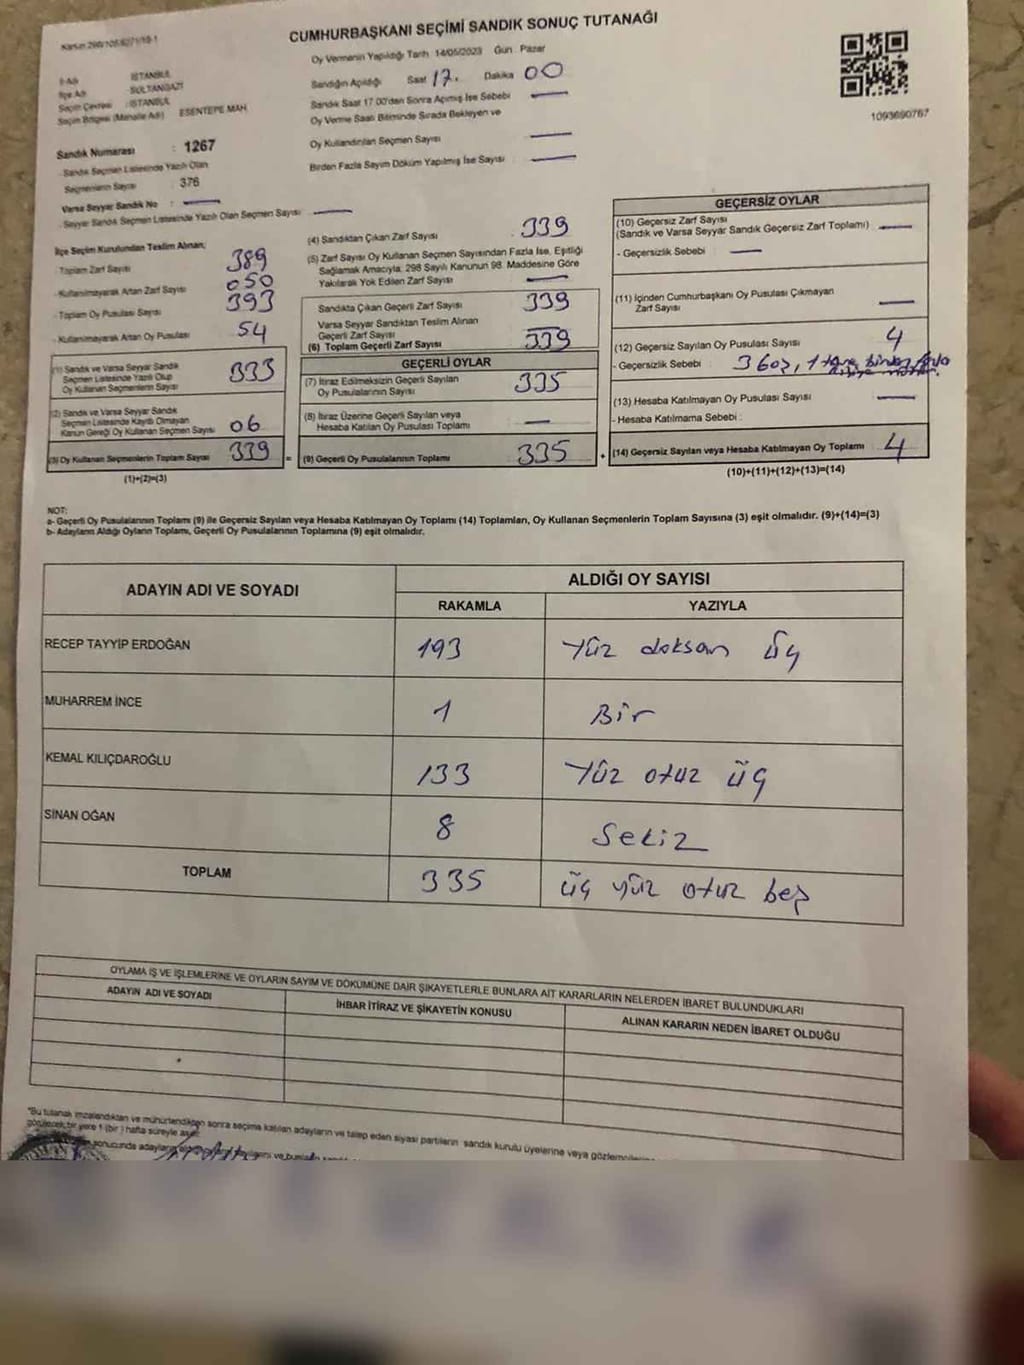 CUMHURBAŞKANI SEÇİMİ SANDIK SONUÇ TUTANAĞI
Oy Vermenin Yapıldığı Tarih 14/05/2023 Gün Pazar
İli Adı İSTANBUL
İlçe Adı SULTANGAZİ
Seçim Çevresi : İSTANBUL
Seçim Bölgesi (Mahalle Adı) ESENTEPE MAH
Sandık Numarası : 1267
Sandık Seçmen Listesinde Yazılı Olan
Seçmenlerin Sayısı : 376
Varsa Seyyar Sandık No :
Seyyar Sandık Seçmen Listesinde Yazılı Olan Seçmen Sayısı
Sandığın Açıldığı Saat 17. Dakika 00
Sandık Saat 17.00'den Sonra Açılmış İse Sebebi
Oy Verme Saati Bitiminde Sırada Bekleyen ve
Oy Kullandırılan Seçmen Sayısı
Birden Fazla Sayım Döküm Yapılmış İse Sayısı
1093690767
İlçe Seçim Kurulundan Teslim Alınan;
Toplam Zarf Sayısı 389
Kullanılmayarak Artan Zarf Sayısı 050
Toplam Oy Pusulası Sayısı 393
Kullanılmayarak Artan Oy Pusulası 54
(1) Sandık ve Varsa Seyyar Sandık
Seçmen Listesinde Yazılı Olup
Oy Kullanan Seçmenlerin Sayısı 333
(2) Sandık ve Varsa Seyyar Sandık
Seçmen Listesinde Kayıtlı Olmayan
Kanun Gereği Oy Kullanan Seçmen Sayısı 06
(3) Oy Kullanan Seçmenlerin Toplam Sayısı 339 =
(1)+(2)=(3)
(4) Sandıktan Çıkan Zarf Sayısı 339
(5) Zarf Sayısı Oy Kullanan Seçmen Sayısından Fazla İse, Eşitliği
Sağlamak Amacıyla; 298 Sayılı Kanunun 98. Maddesine Göre
Yakılarak Yok Edilen Zarf Sayısı
Sandıkta Çıkan Geçerli Zarf Sayısı 339
Varsa Seyyar Sandıktan Teslim Alınan
Geçerli Zarf Sayısı
(6) Toplam Geçerli Zarf Sayısı 339
GEÇERLİ OYLAR
(7) İtiraz Edilmeksizin Geçerli Sayılan
Oy Pusulalarının Sayısı 335
(8) İtiraz Üzerine Geçerli Sayılan veya
Hesaba Katılan Oy Pusulası Toplamı
(9) Geçerli Oy Pusulalarının Toplamı 335 +
GEÇERSİZ OYLAR
(10) Geçersiz Zarf Sayısı
(Sandık ve Varsa Seyyar Sandık Geçersiz Zarf Toplamı)
- Geçersizlik Sebebi :
(11) İçinden Cumhurbaşkanı Oy Pusulası Çıkmayan
Zarf Sayısı
(12) Geçersiz Sayılan Oy Pusulası Sayısı 4
- Geçersizlik Sebebi : 3 boş, 1 tane birden fazla
(13) Hesaba Katılmayan Oy Pusulası Sayısı
- Hesaba Katılmama Sebebi :
(14) Geçersiz Sayılan veya Hesaba Katılmayan Oy Toplamı 4
(10)+(11)+(12)+(13)=(14)
NOT:
a- Geçerli Oy Pusulalarının Toplamı (9) ile Geçersiz Sayılan veya Hesaba Katılmayan Oy Toplamı (14) Toplamları, Oy Kullanan Seçmenlerin Toplam Sayısına (3) eşit olmalıdır. (9)+(14)=(3)
b- Adayların Aldığı Oyların Toplamı, Geçerli Oy Pusulalarının Toplamına (9) eşit olmalıdır.
ADAYIN ADI VE SOYADI ALDIĞI OY SAYISI
RAKAMLA YAZIYLA
RECEP TAYYİP ERDOĞAN 193 Yüz doksan üç
MUHARREM İNCE 1 Bir
KEMAL KILIÇDAROĞLU 133 Yüz otuz üç
SİNAN OĞAN 8 Sekiz
TOPLAM 335 üç yüz otuz beş
OYLAMA İŞ VE İŞLEMLERİNE VE OYLARIN SAYIM VE DÖKÜMÜNE DAİR ŞİKAYETLERLE BUNLARA AİT KARARLARIN NELERDEN İBARET BULUNDUKLARI
ADAYIN ADI VE SOYADI İHBAR İTİRAZ VE ŞİKAYETİN KONUSU ALINAN KARARIN NEDEN İBARET OLDUĞU
"Bu tutanak imzalandıktan ve mühürlendikten sonra seçime katılan adayların ve talep eden siyasi partilerin sandık kurulu üyelerine veya gözlemcilerine
görülecek bir yere 1 (bir) hafta süreyle asılır.
sonucunda adayların